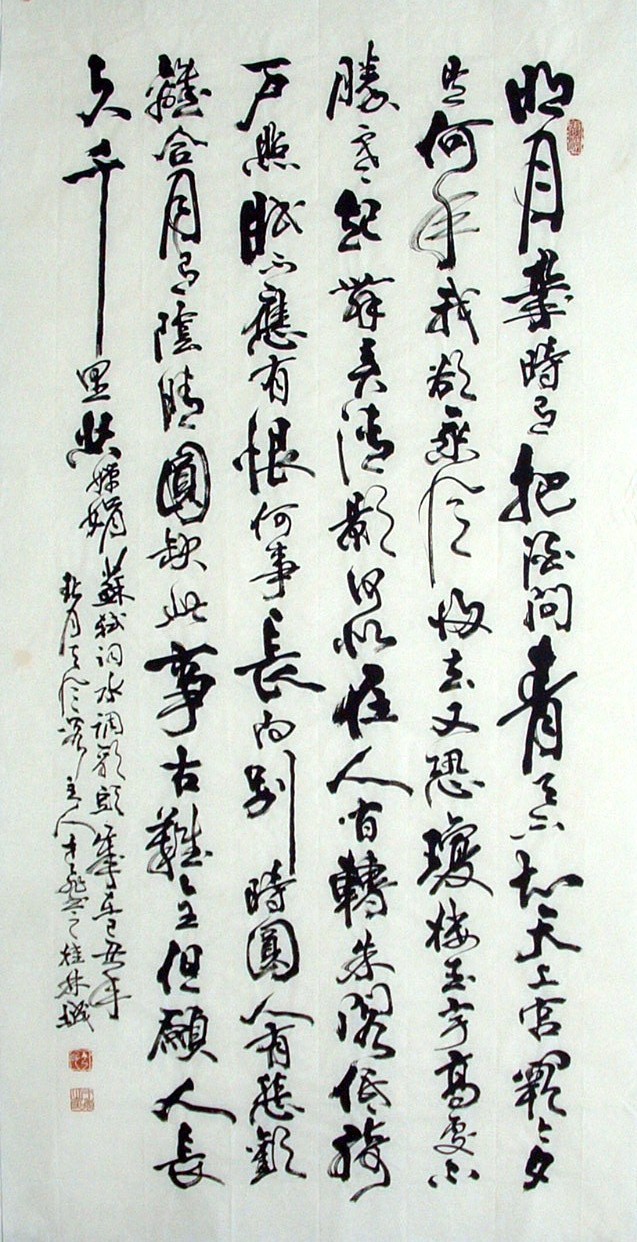 明月幾時有把酒問青天不知天上宮闕今夕
是何年我欲乘風歸去又恐瓊楼玉宇高處不
勝寒起舞弄清影何似在人間轉朱閣低綺
戶照眠不應有恨何事長向別時圓人有悲歡
離合月有陰晴圓缺此事古難全但願人長
久千里共嬋娟 蘇軾词水调歌頭
主人 桂林